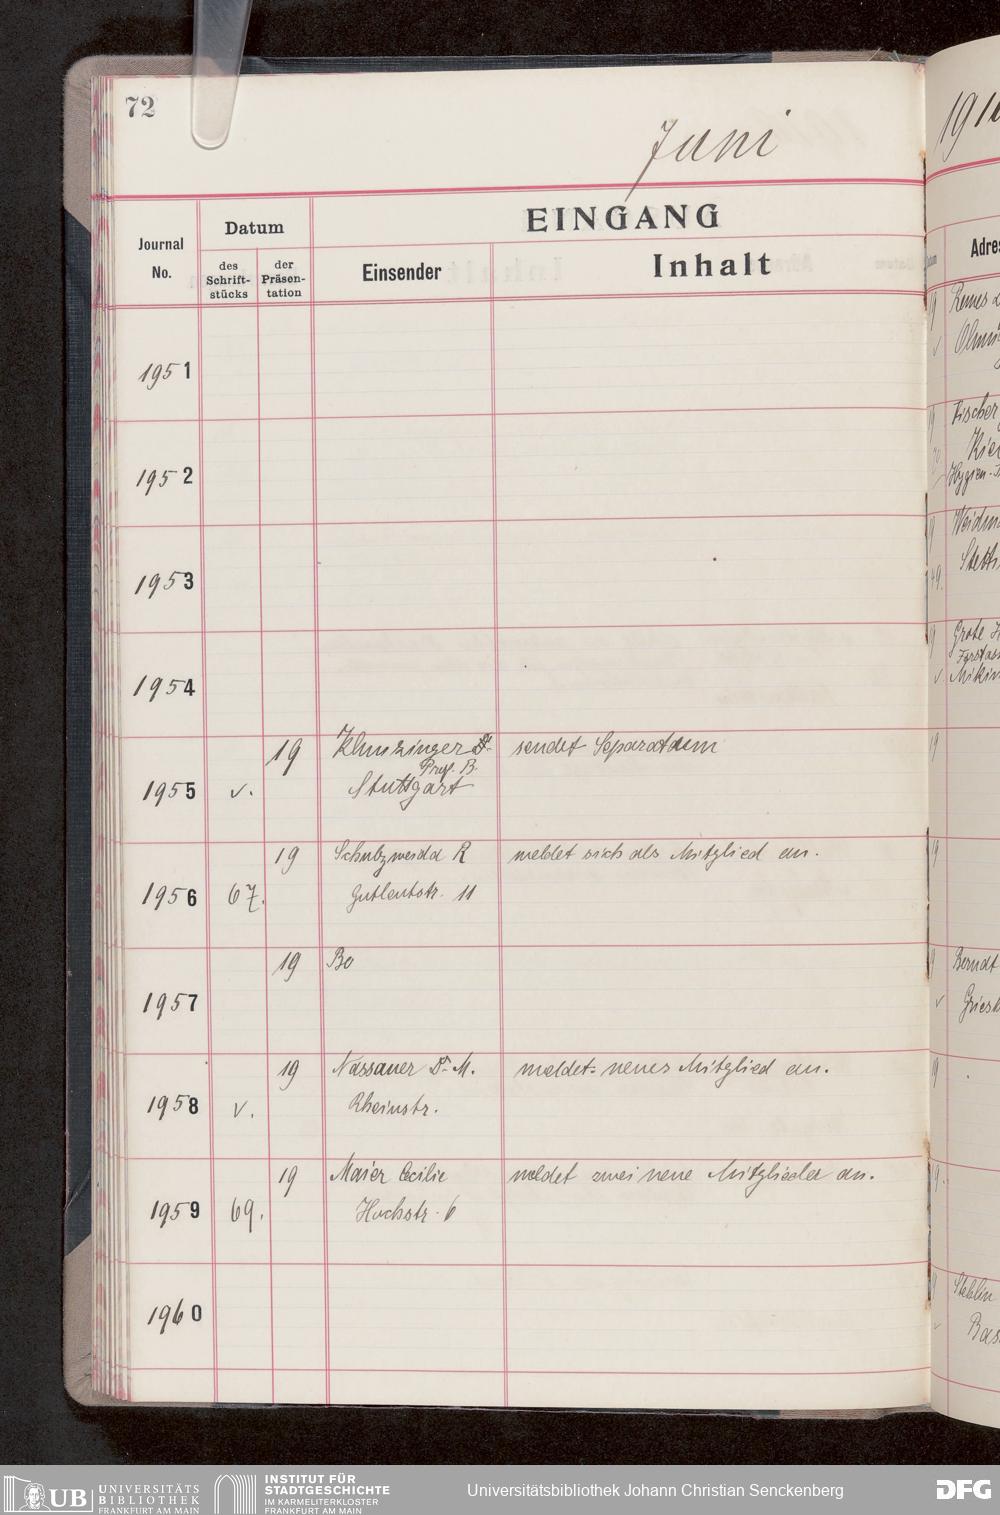 72
Juni
EINGANG
Journal
No.
Datum
des
Schrift-
stücks
der
Präsen-
tation
Einsender
Inhalt
1951
1952
1953
1954
1955
v.
19
Klunzinger Dr.
Prof. B.
Stuttgart
sendet Separatum
1956
67.
19
R
Gutleutstr. 11
meldet sich als Mitglied an.
1957
19
Bo
1958
v.
19
Nassauer Dr. M.
Rheinstr.
meldet neues Mitglied an.
1959
69.
19
Maier Cecilie
Hochstr. 6
meldet zwei neue Mitglieder an.
1960
191
Adres
Remes
Olmü
Fischer
Kie
Hygien-
Weidm
Stetti
Grote H
Forstas
Mikin
Berndt
Griesk
Stehlin
Bas
UB UNIVERSITÄTS
BIBLIOTHEK
FRANKFURT AM MAIN
INSTITUT FÜR
STADTGESCHICHTE
IM KARMELITERKLOSTER
FRANKFURT AM MAIN
Universitätsbibliothek Johann Christian Senckenberg
DFG